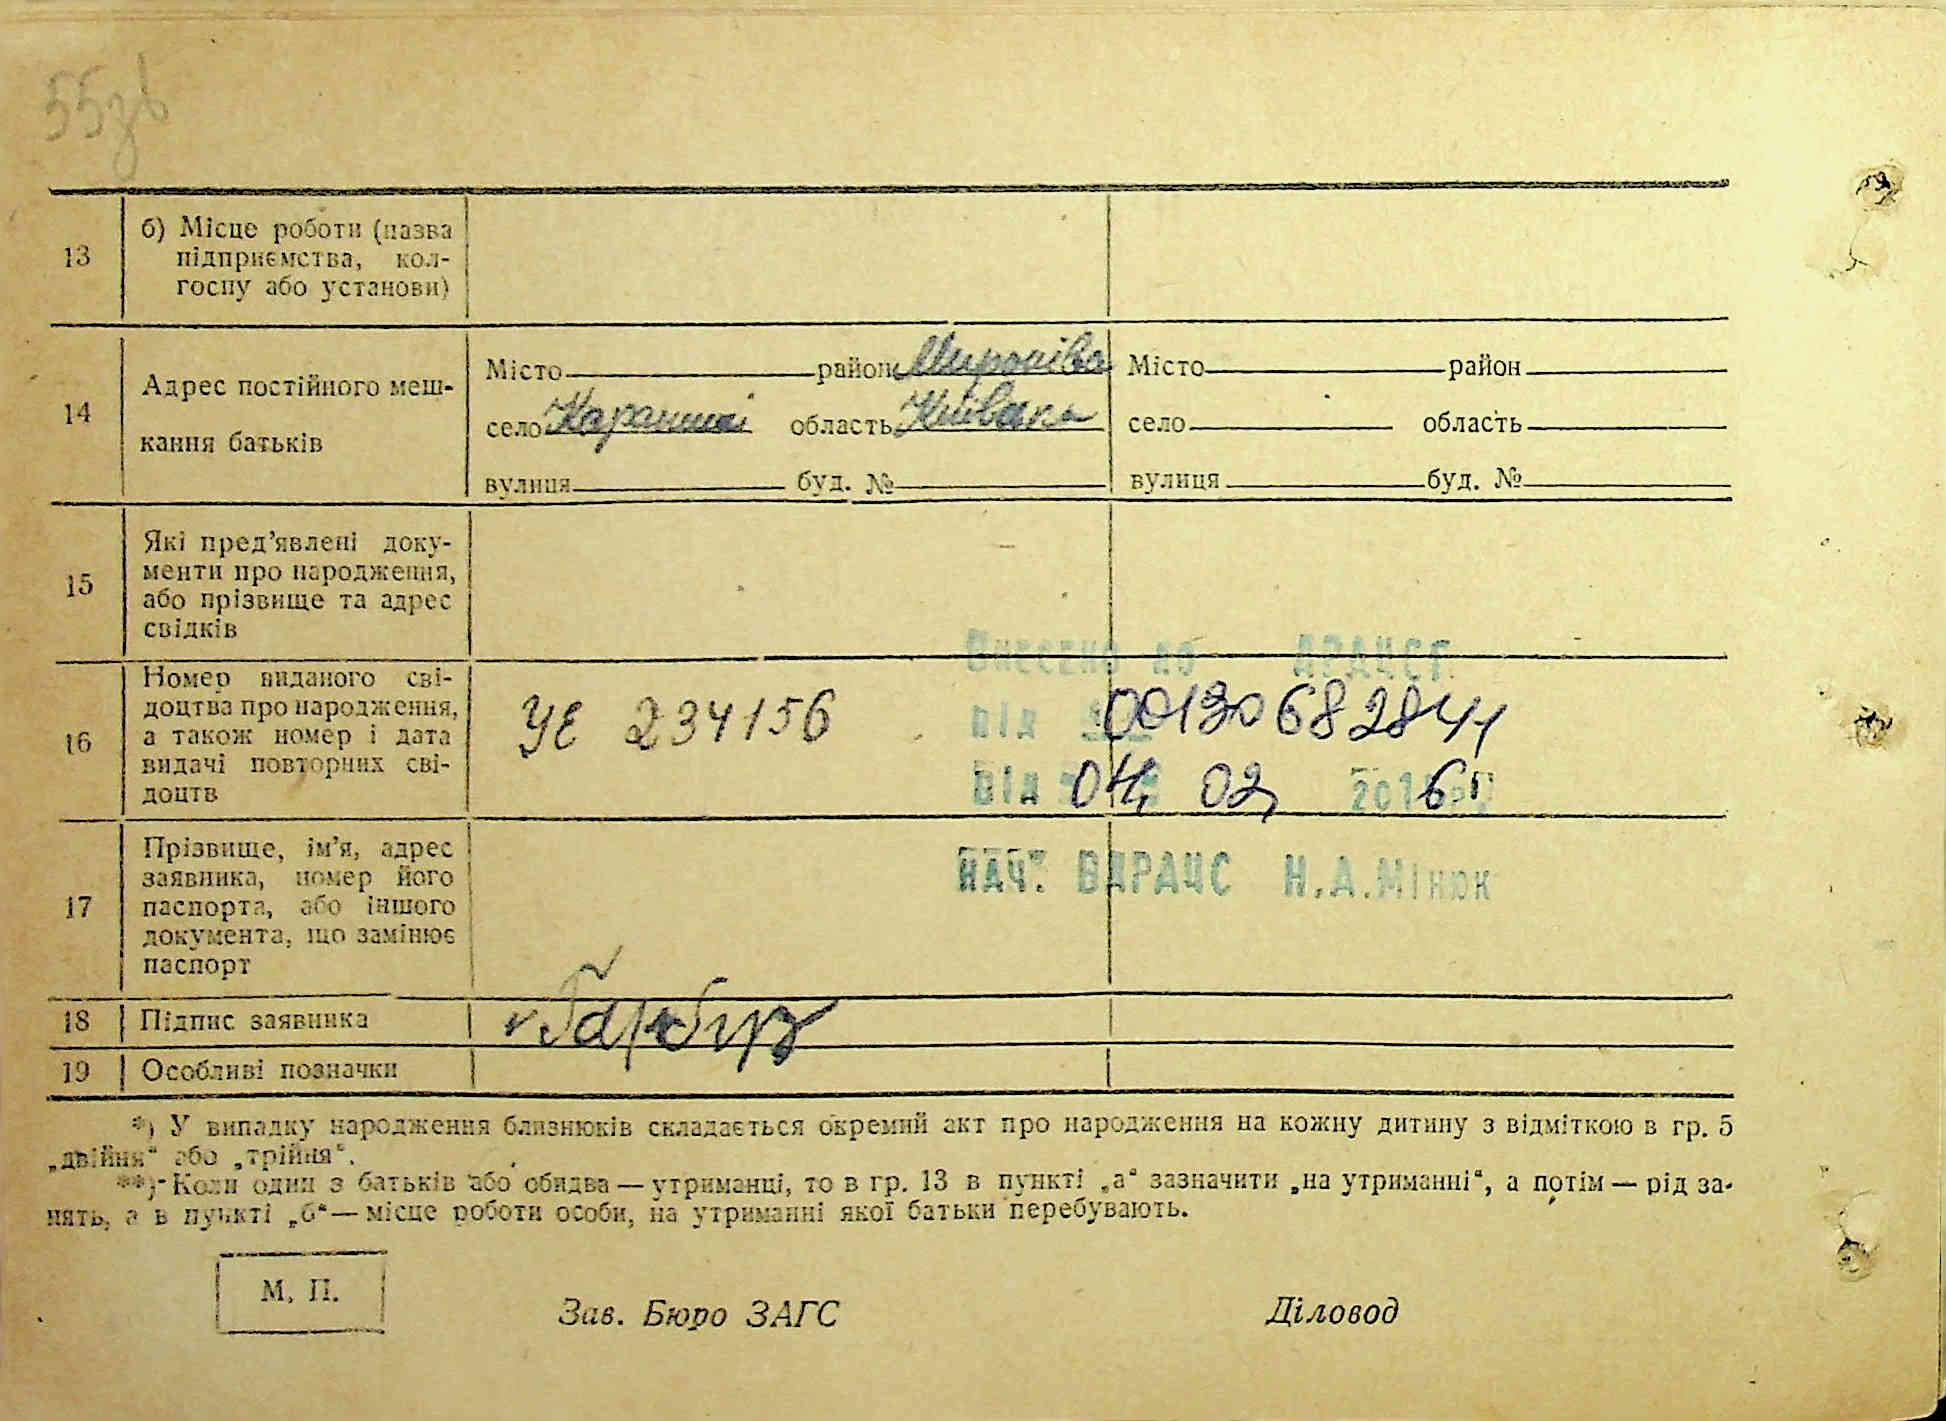 55зв
13
б) Місце роботи (назва
підприємства, кол-
госпу або установи)
14
Адрес постійного меш-
кання батьків
Місто район Миронівка
село Карапиші область Київська
вулиця буд. №
Місто район
село область
вулиця буд. №
15
Які пред'явлені доку-
менти про народження,
або прізвище та адрес
свідків
16
Номер виданого сві-
доцтва про народження,
а також номер і дата
видачі повторних сві-
доцтв
УЕ 234156
Внесено до ДРАЦСГ
від
від 04, 02, 2016
нач. ВДРАЦС Н.А.Мінюк
17
Прізвище, ім'я, адрес
заявника, номер його
паспорта, або іншого
документа, що замінює
паспорт
18
Підпис заявника
19
Особливі позначки
*) У випадку народження близнюків складається окремий акт про народження на кожну дитину з відміткою в гр. 5
„двійня“ або „трійня“.
**) Коли один з батьків або обидва — утриманці, то в гр. 13 в пункті „а“ зазначити „на утриманні“, а потім — рід за-
нять, а в пункті „б“ — місце роботи особи, на утриманні якої батьки перебувають.
М. П.
Зав. Бюро ЗАГС
Діловод